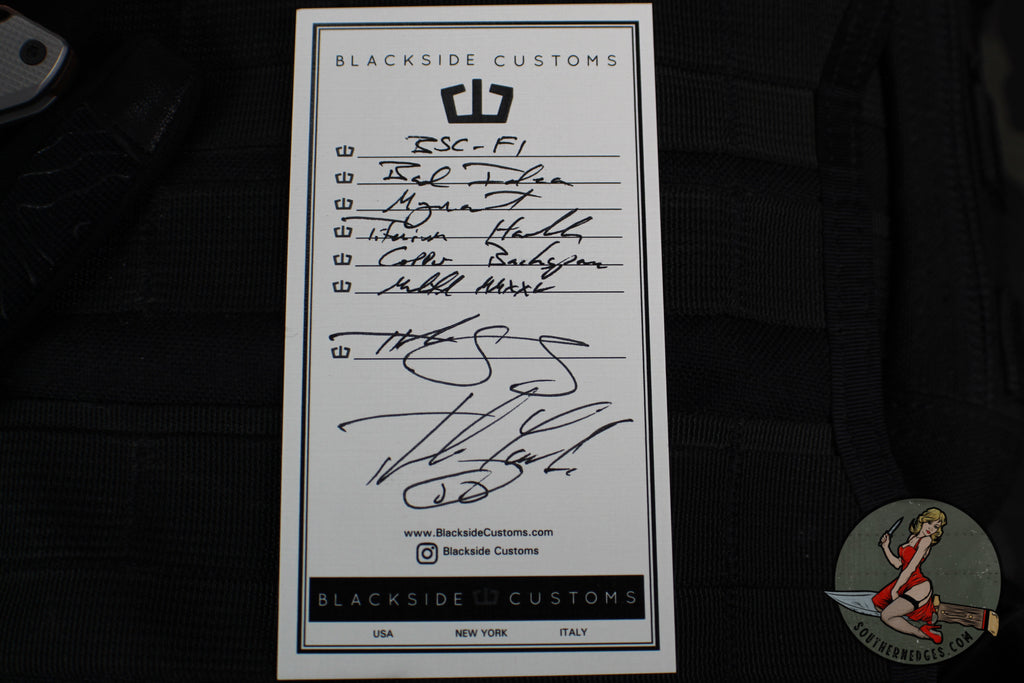 BLACKSIDE CUSTOMS
BSC-F1
Bad Idea
Magnacut
Titanium Handles
Copper Backspacer
MMXXV
www.BlacksideCustoms.com
Blackside Customs
BLACKSIDE CUSTOMS
USA NEW YORK ITALY
SOUTHERNEDGES.COM